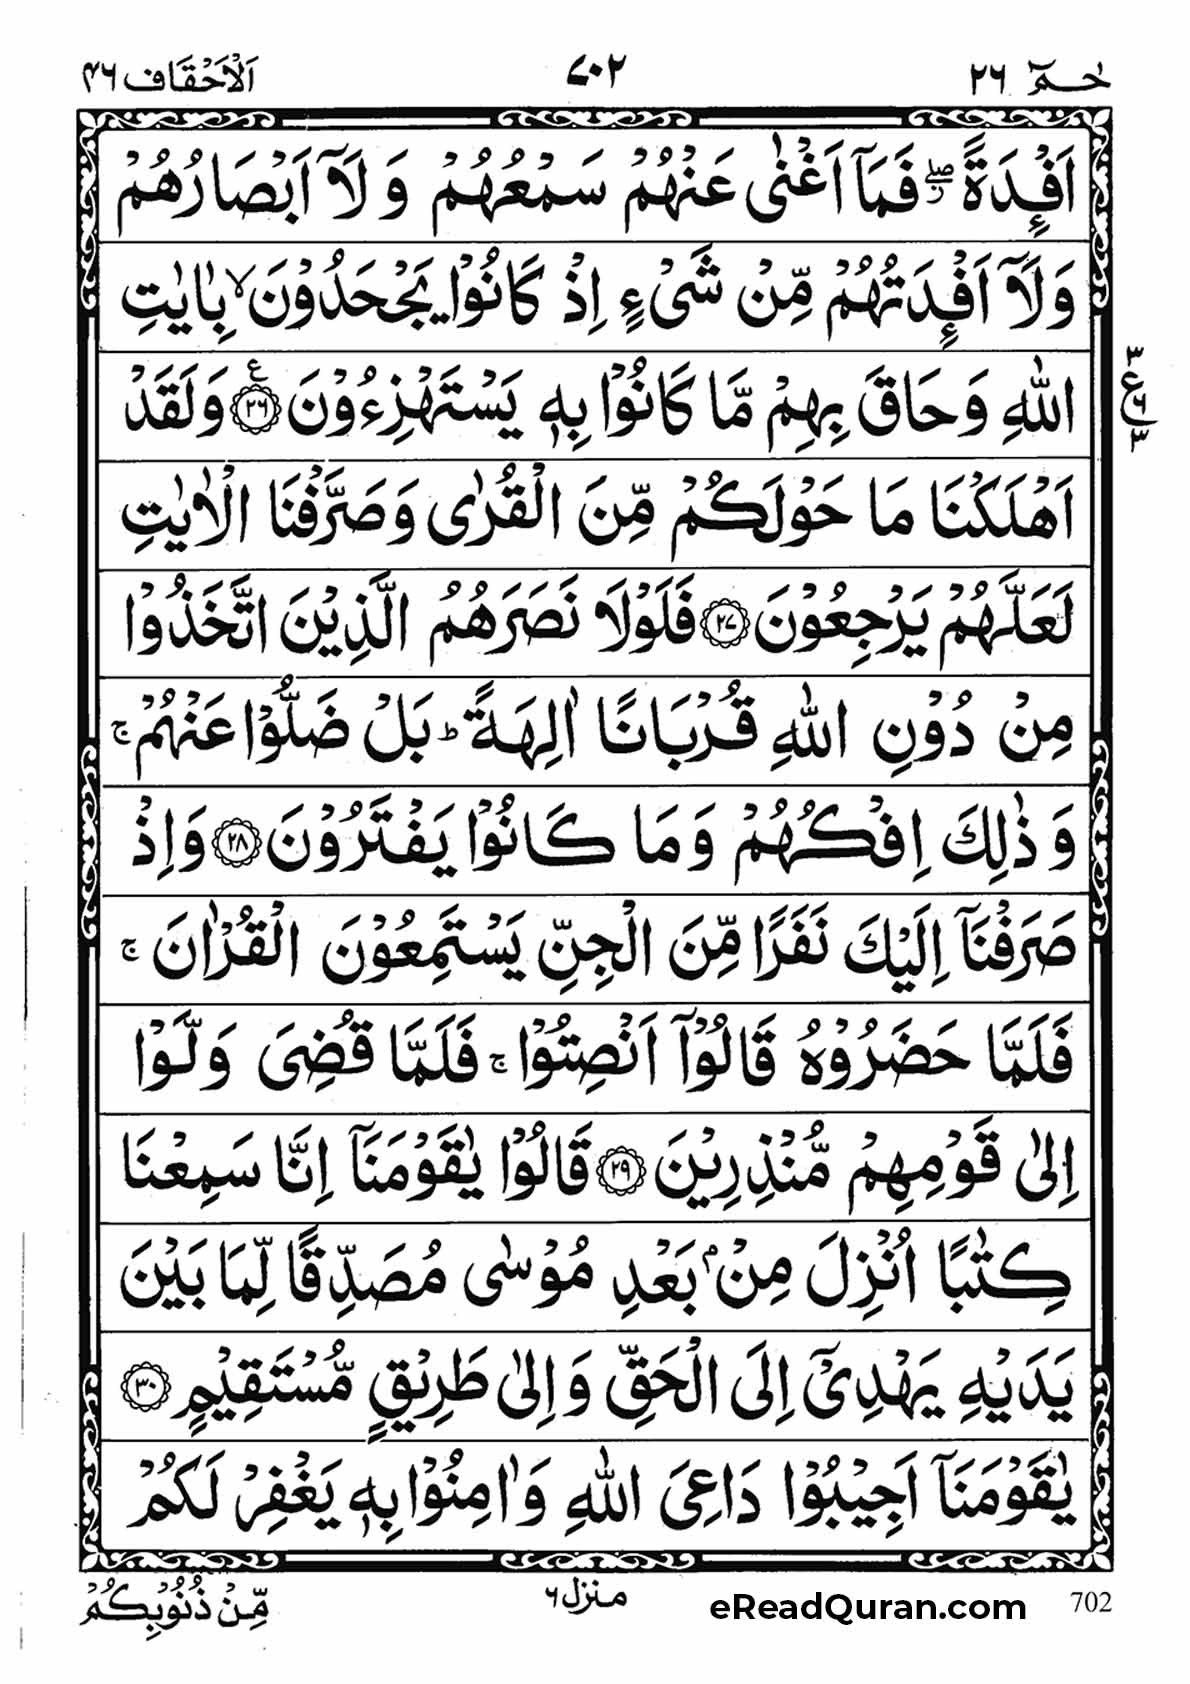 حٰمٓ ٢٦ ٧٠٢ اَلْاَحْقَاف ٤٦
اَفْـِٕدَةً ۖز فَمَاۤ اَغْنٰى عَنْهُمْ سَمْعُهُمْ وَ لَاۤ اَبْصَارُهُمْ
وَلَاۤ اَفْـِٕدَتُهُمْ مِّنْ شَیْءٍ اِذْ كَانُوْا یَجْحَدُوْنَ ۙ بِاٰیٰتِ
اللّٰهِ وَ حَاقَ بِهِمْ مَّا كَانُوْا بِهٖ یَسْتَهْزِءُوْنَ ﴿٢٦﴾ ع وَ لَقَدْ
اَهْلَكْنَا مَا حَوْلَكُمْ مِّنَ الْقُرٰى وَ صَرَّفْنَا الْاٰیٰتِ
لَعَلَّهُمْ یَرْجِعُوْنَ ﴿٢٧﴾ فَلَوْلَا نَصَرَهُمُ الَّذِیْنَ اتَّخَذُوْا
مِنْ دُوْنِ اللّٰهِ قُرْبَانًا اٰلِهَةً ؕ بَلْ ضَلُّوْا عَنْهُمْ ۚ
وَ ذٰلِكَ اِفْكُهُمْ وَ مَا كَانُوْا یَفْتَرُوْنَ ﴿٢٨﴾ وَ اِذْ
صَرَفْنَاۤ اِلَیْكَ نَفَرًا مِّنَ الْجِنِّ یَسْتَمِعُوْنَ الْقُرْاٰنَ ۚ
فَلَمَّا حَضَرُوْهُ قَالُوْۤا اَنْصِتُوْا ۚ فَلَمَّا قُضِیَ وَلَّوْا
اِلٰى قَوْمِهِمْ مُّنْذِرِیْنَ ﴿٢٩﴾ قَالُوْا یٰقَوْمَنَاۤ اِنَّا سَمِعْنَا
كِتٰبًا اُنْزِلَ مِنْۢ بَعْدِ مُوْسٰى مُصَدِّقًا لِّمَا بَیْنَ
یَدَیْهِ یَهْدِیْۤ اِلَى الْحَقِّ وَ اِلٰى طَرِیْقٍ مُّسْتَقِیْمٍ ﴿٣٠﴾
یٰقَوْمَنَاۤ اَجِیْبُوْا دَاعِیَ اللّٰهِ وَ اٰمِنُوْا بِهٖ یَغْفِرْ لَكُمْ
702 eReadQuran.com منزل ٦ مِّنْ ذُنُوْبِكُمْ